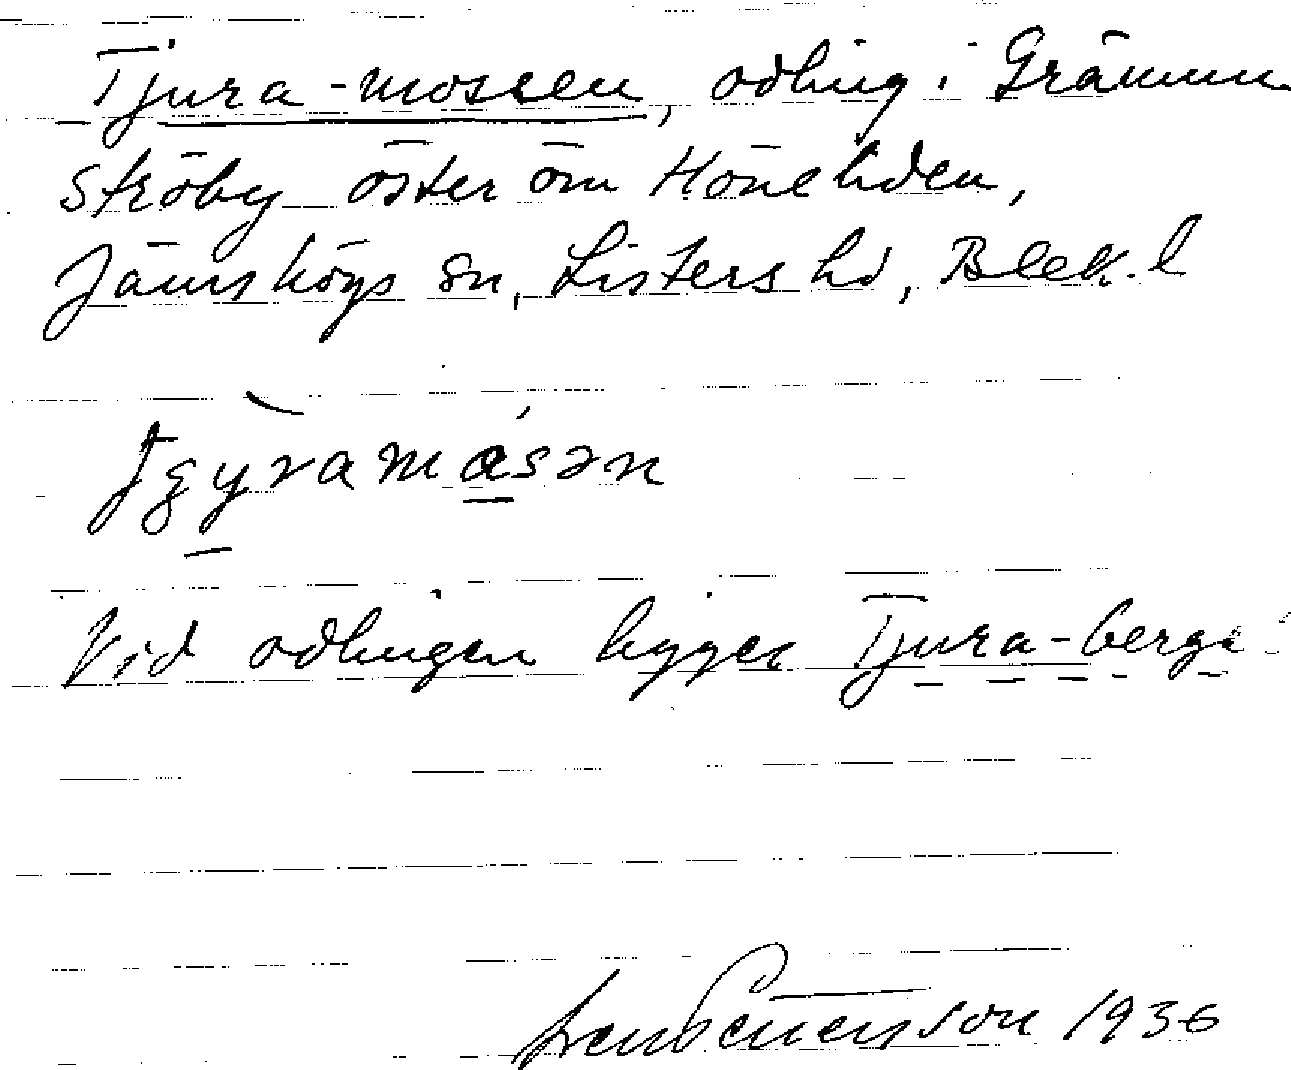 Tjura-mossen, odling i Grämum
Ströby öster om Höneliden,
Jämshögs sn, Listers hd, Blek. l
Vid odlingen ligger Tjura-berge
Pettersson 1936